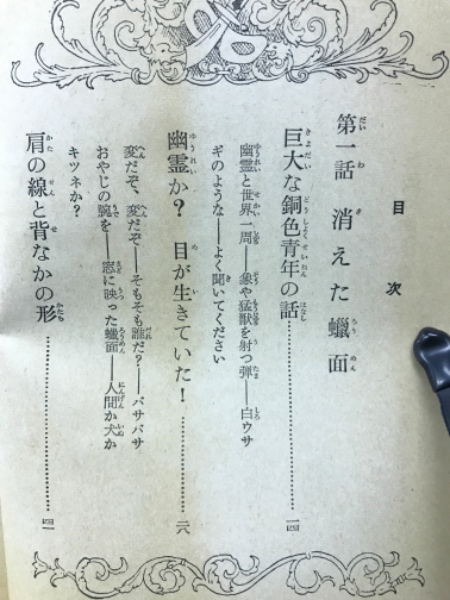 目次
第一話 消えた蠟面
巨大な銅色青年の話……………一四
幽霊と世界一周――象や猛獣を射つ弾――白ウサ
ギのような――よく聞いてください
幽霊か? 目が生きていた!……………二六
変だぞ、変だぞ――そもそも誰だ?――バサバサ
おやじの腕を――窓に映った蠟面――人間か犬か
キツネか?
肩の線と背なかの形……………四一